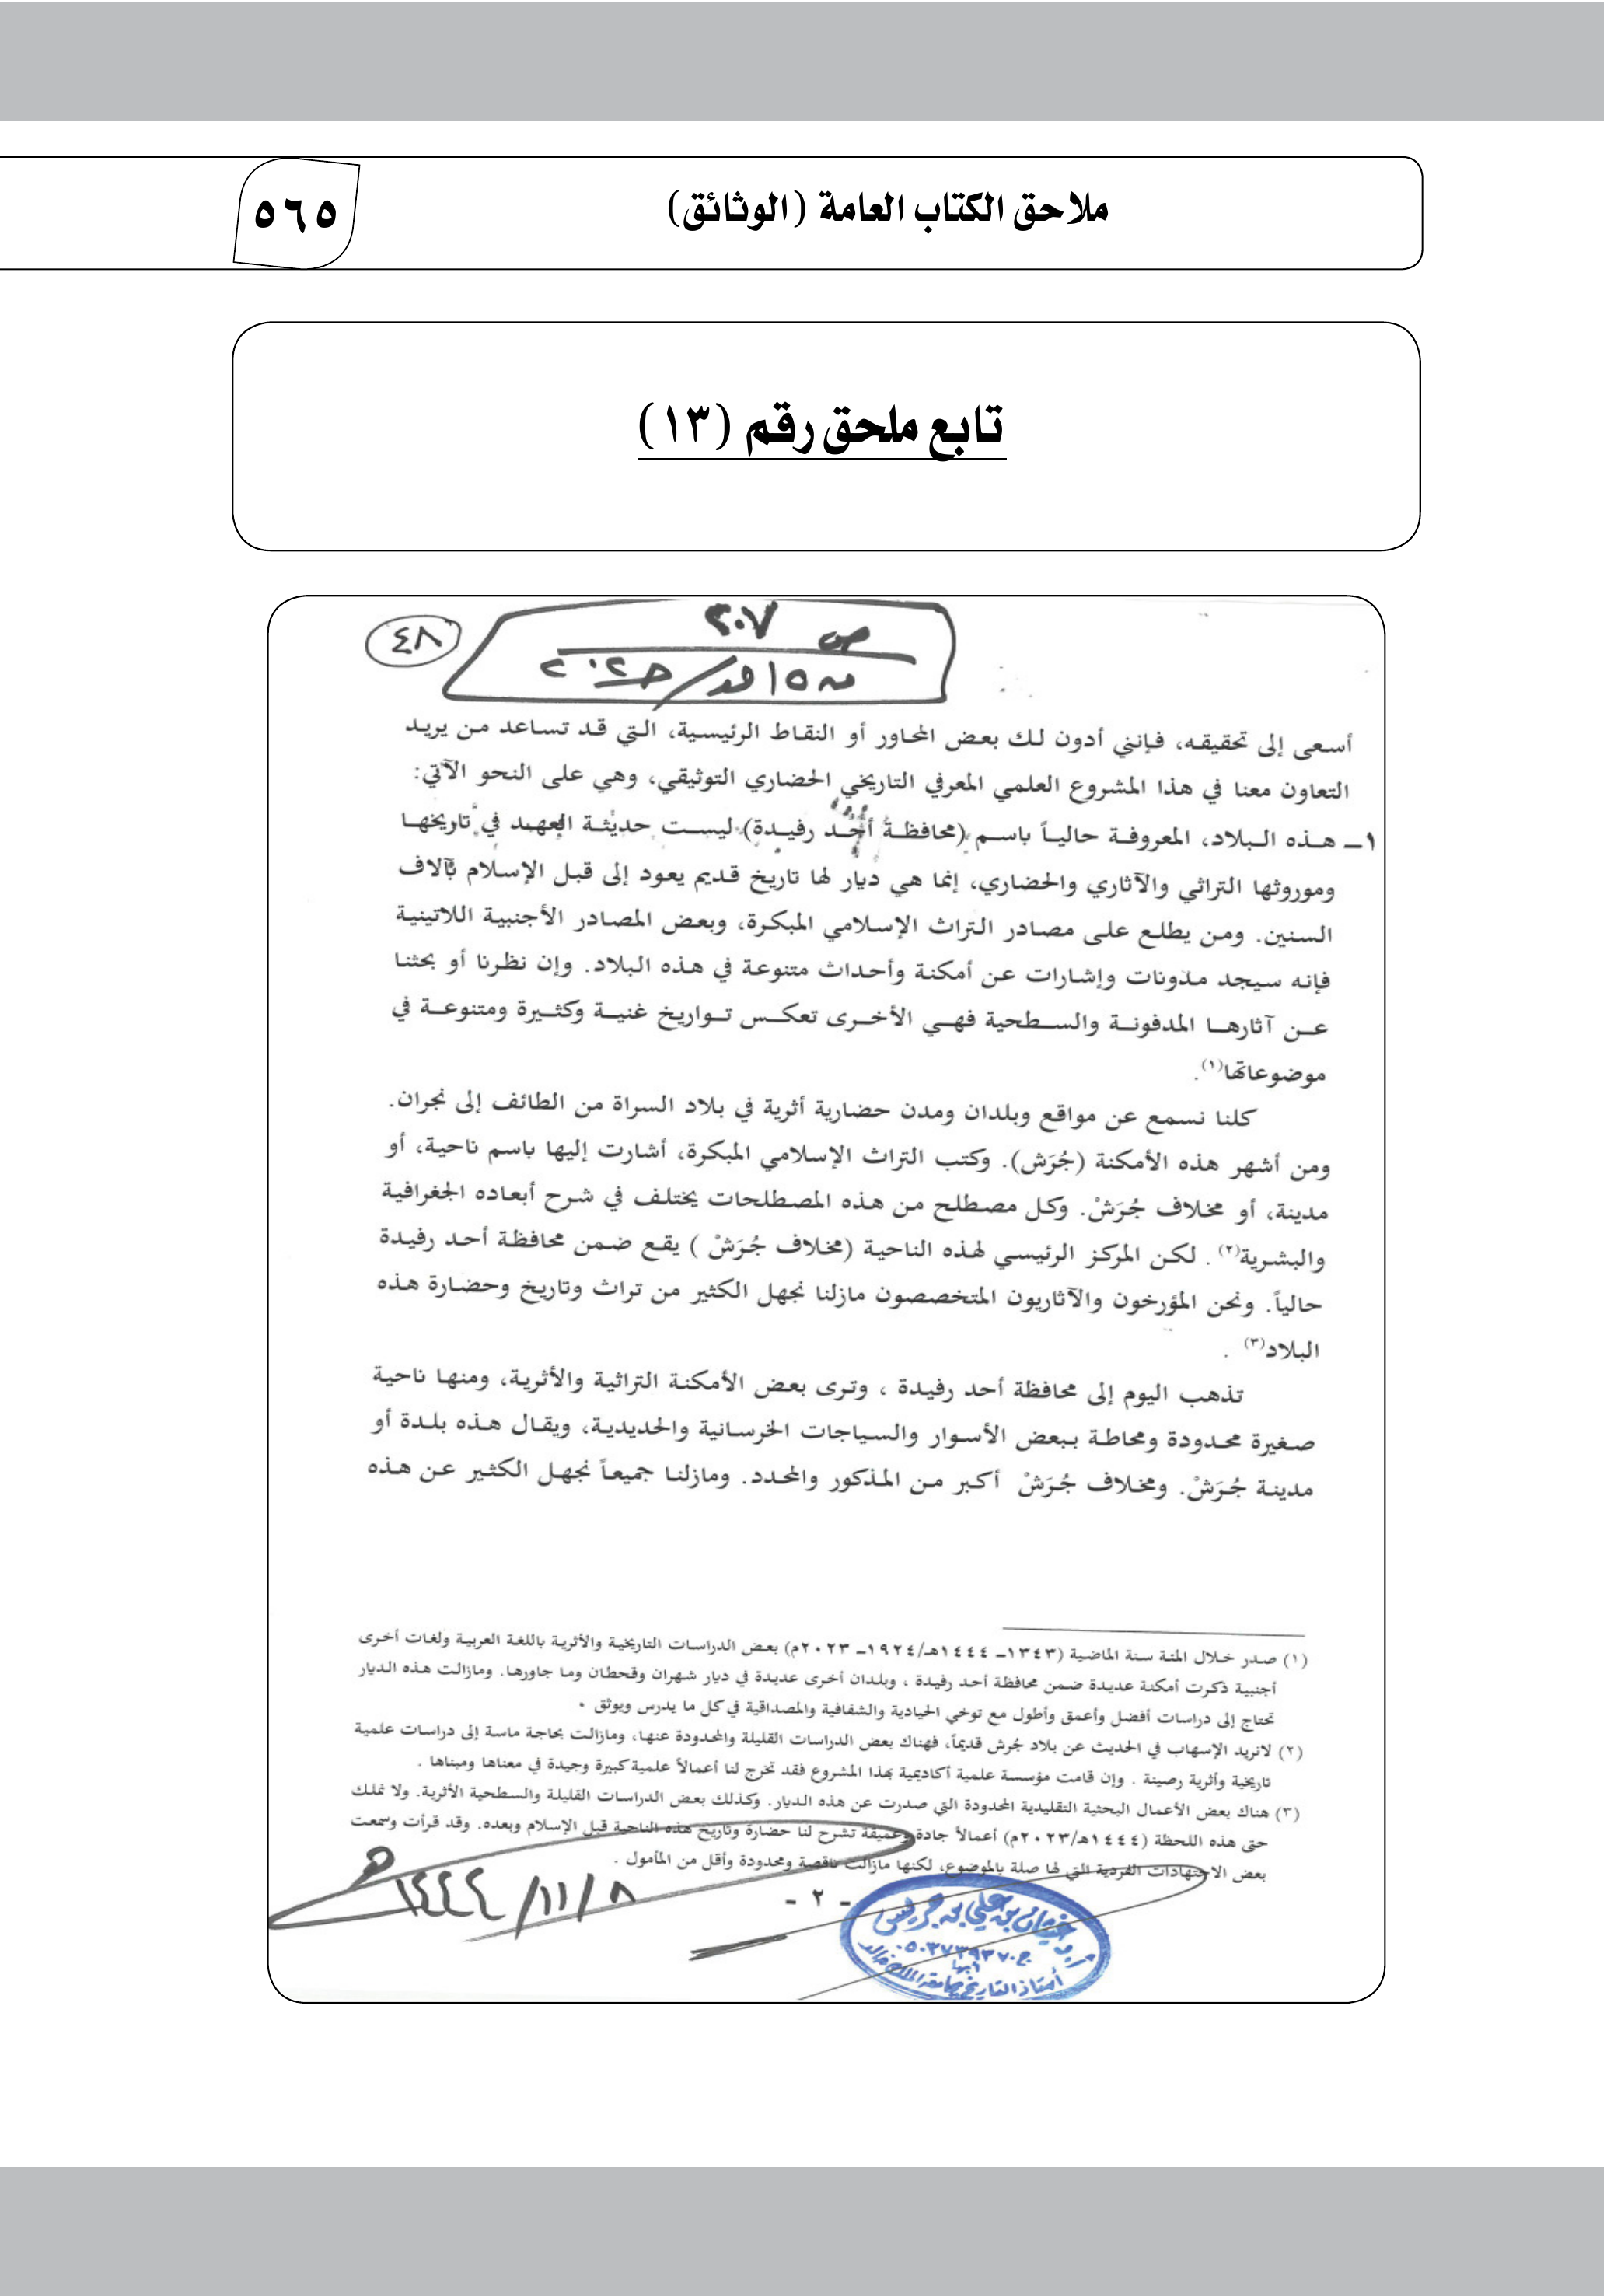 ملاحق الكتاب العامة (الوثائق)
٥٦٥
تابع ملحق رقم (١٣)
ص ٢٠٧
٤٨
أسعى إلى تحقيقه، فإنني أدون لك بعض المحاور أو النقاط الرئيسية، التي قد تساعد من يريد
التعاون معنا في هذا المشروع العلمي المعرفي التاريخي الحضاري التوثيقي، وهي على النحو الآتي:
١ـ هذه البلاد، المعروفة حالياً باسم (محافظة أحد رفيدة) ليست حديثة العهد في تاريخها
وموروثها التراثي والآثاري والحضاري، إنما هي ديار لها تاريخ قديم يعود إلى قبل الإسلام بآلاف
السنين. ومن يطلع على مصادر التراث الإسلامي المبكرة، وبعض المصادر الأجنبية اللاتينية
فإنه سيجد مدونات وإشارات عن أمكنة وأحداث متنوعة في هذه البلاد. وإن نظرنا أو بحثنا
عن آثارها المدفونة والسطحية فهي الأخرى تعكس تواريخ غنية وكثيرة ومتنوعة في
موضوعاتها(١).
كلنا نسمع عن مواقع وبلدان ومدن حضارية أثرية في بلاد السراة من الطائف إلى نجران.
ومن أشهر هذه الأمكنة (جُرَش). وكتب التراث الإسلامي المبكرة، أشارت إليها باسم ناحية، أو
مدينة، أو مخلاف جُرَشْ. وكل مصطلح من هذه المصطلحات يختلف في شرح أبعاده الجغرافية
والبشرية(٢) . لكن المركز الرئيسي لهذه الناحية (مخلاف جُرَشْ ) يقع ضمن محافظة أحد رفيدة
حالياً. ونحن المؤرخون والآثاريون المتخصصون مازلنا نجهل الكثير من تراث وتاريخ وحضارة هذه
البلاد(٣) .
تذهب اليوم إلى محافظة أحد رفيدة ، وترى بعض الأمكنة التراثية والأثرية، ومنها ناحية
صغيرة محدودة ومحاطة ببعض الأسوار والسياجات الخرسانية والحديدية، ويقال هذه بلدة أو
مدينة جُرَشْ. ومخلاف جُرَشْ أكبر من المذكور والمحدد. ومازلنا جميعاً نجهل الكثير عن هذه
(١) صدر خلال المئة سنة الماضية (١٣٤٣ـ ١٤٤٤هـ/١٩٢٤ـ ٢٠٢٣م) بعض الدراسات التاريخية والأثرية باللغة العربية ولغات أخرى
أجنبية ذكرت أمكنة عديدة ضمن محافظة أحد رفيدة ، وبلدان أخرى عديدة في ديار شهران وقحطان وما جاورها. ومازالت هذه الديار
تحتاج إلى دراسات أفضل وأعمق وأطول مع توخي الحيادية والشفافية والمصداقية في كل ما يدرس ويوثق .
(٢) لانريد الإسهاب في الحديث عن بلاد جُرش قديماً، فهناك بعض الدراسات القليلة والمحدودة عنها، ومازالت بحاجة ماسة إلى دراسات علمية
تاريخية وأثرية رصينة . وإن قامت مؤسسة علمية أكاديمية بهذا المشروع فقد تخرج لنا أعمالاً علمية كبيرة وجيدة في معناها ومبناها .
(٣) هناك بعض الأعمال البحثية التقليدية المحدودة التي صدرت عن هذه الديار. وكذلك بعض الدراسات القليلة والسطحية الأثرية. ولا نملك
حتى هذه اللحظة (١٤٤٤هـ/٢٠٢٣م) أعمالاً جادة وعميقة تشرح لنا حضارة وتاريخ هذه الناحية قبل الإسلام وبعده. وقد قرأت وسمعت
بعض الاجتهادات الفردية التي لها صلة بالموضوع، لكنها مازالت ناقصة ومحدودة وأقل من المأمول .
- ٢ -
٨/١١/١٤٤٤هـ
غيثان بن علي بن جريس
ج ٠٥٠٣٧٣٩٣٧٠
أبها
أستاذ التاريخ بجامعة الملك خالد